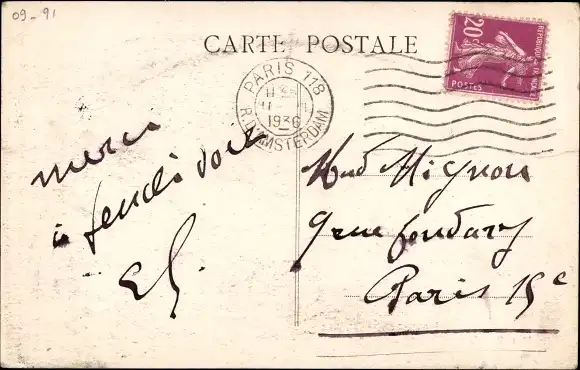 09-91
CARTE POSTALE
20c
REPUBLIQUE FRANCAISE
POSTES
PARIS 118
1936
R. D'AMSTERDAM
merci
à
E
Mad Mignon
9 rue Fondary
Paris 15e